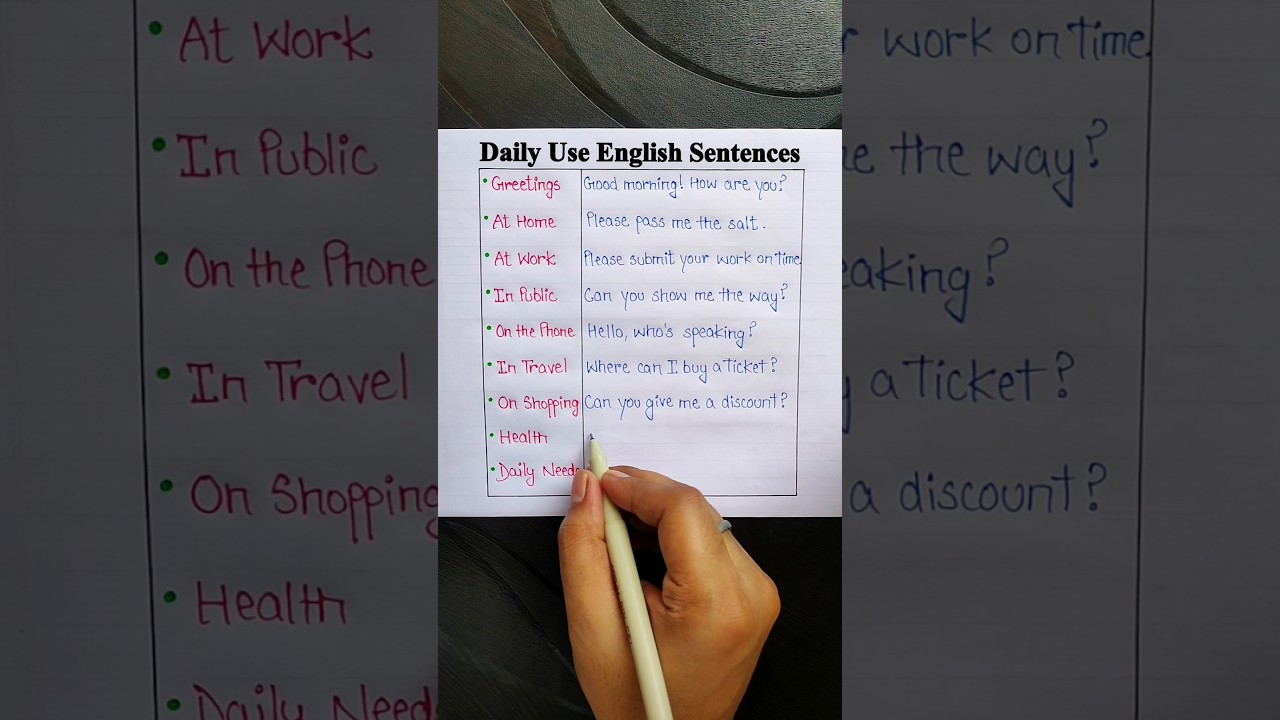 Daily Use English Sentences
• Greetings Good morning! How are you?
• At Home Please pass me the salt.
• At Work Please submit your work on time
• In Public Can you show me the way?
• On the Phone Hello, who's speaking?
• In Travel Where can I buy a ticket?
• On Shopping Can you give me a discount?
• Health
• Daily Needs
• At Work
• In Public
• On the Phone
• In Travel
• On Shopping
• Health
• Daily Need
work on time
the way?
a ticket?
a discount?